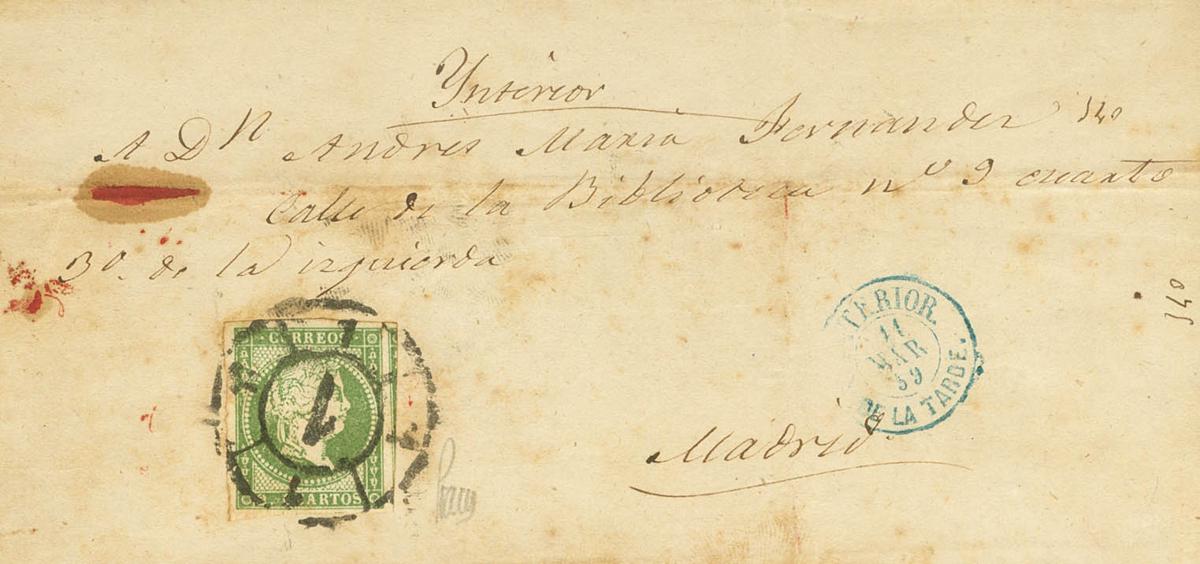 Ynterior
A Dn Andres Maria Fernandez
Calle de la Biblioteca nº 9 cuarto
3º. de la izquierda
CORREOS
1
CUARTOS
TERIOR.
11
MAR
59
DE LA TARDE.
Madrid